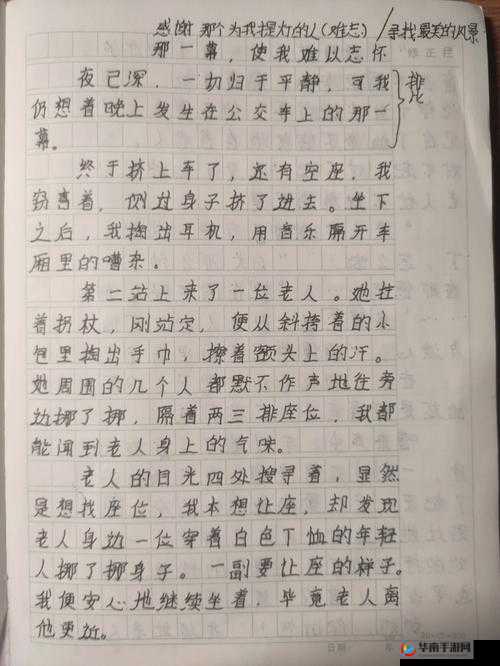 感谢那个为我提灯的人(难忘)/寻找最美的风景
那一幕，使我难以忘怀
修正栏
夜已深，一切归于平静，可我
排比
仍想着晚上发生在公交车上的那一
幕。
终于挤上车了，还有空座，我
窃喜着，侧过身子挤了进去。坐下
之后，我掏出耳机，用音乐隔开车
厢里的嘈杂。
第二站上来了一位老人。她拄
着拐杖，刚站定，便从斜挎着的小
包里掏出手巾，擦着额头上的汗。
她周围的几个人都默不作声地往旁
边挪了挪，隔着两三排座位，我都
能闻到老人身上的气味。
老人的目光四处搜寻着，显然
是想找座位，我本想让座，却发现
老人身边一位穿着白色T恤的年轻
人挪了挪身子。一副要让座的样子。
我便安心地继续坐着，毕竟老人离
他更近。
日期
华南手游网